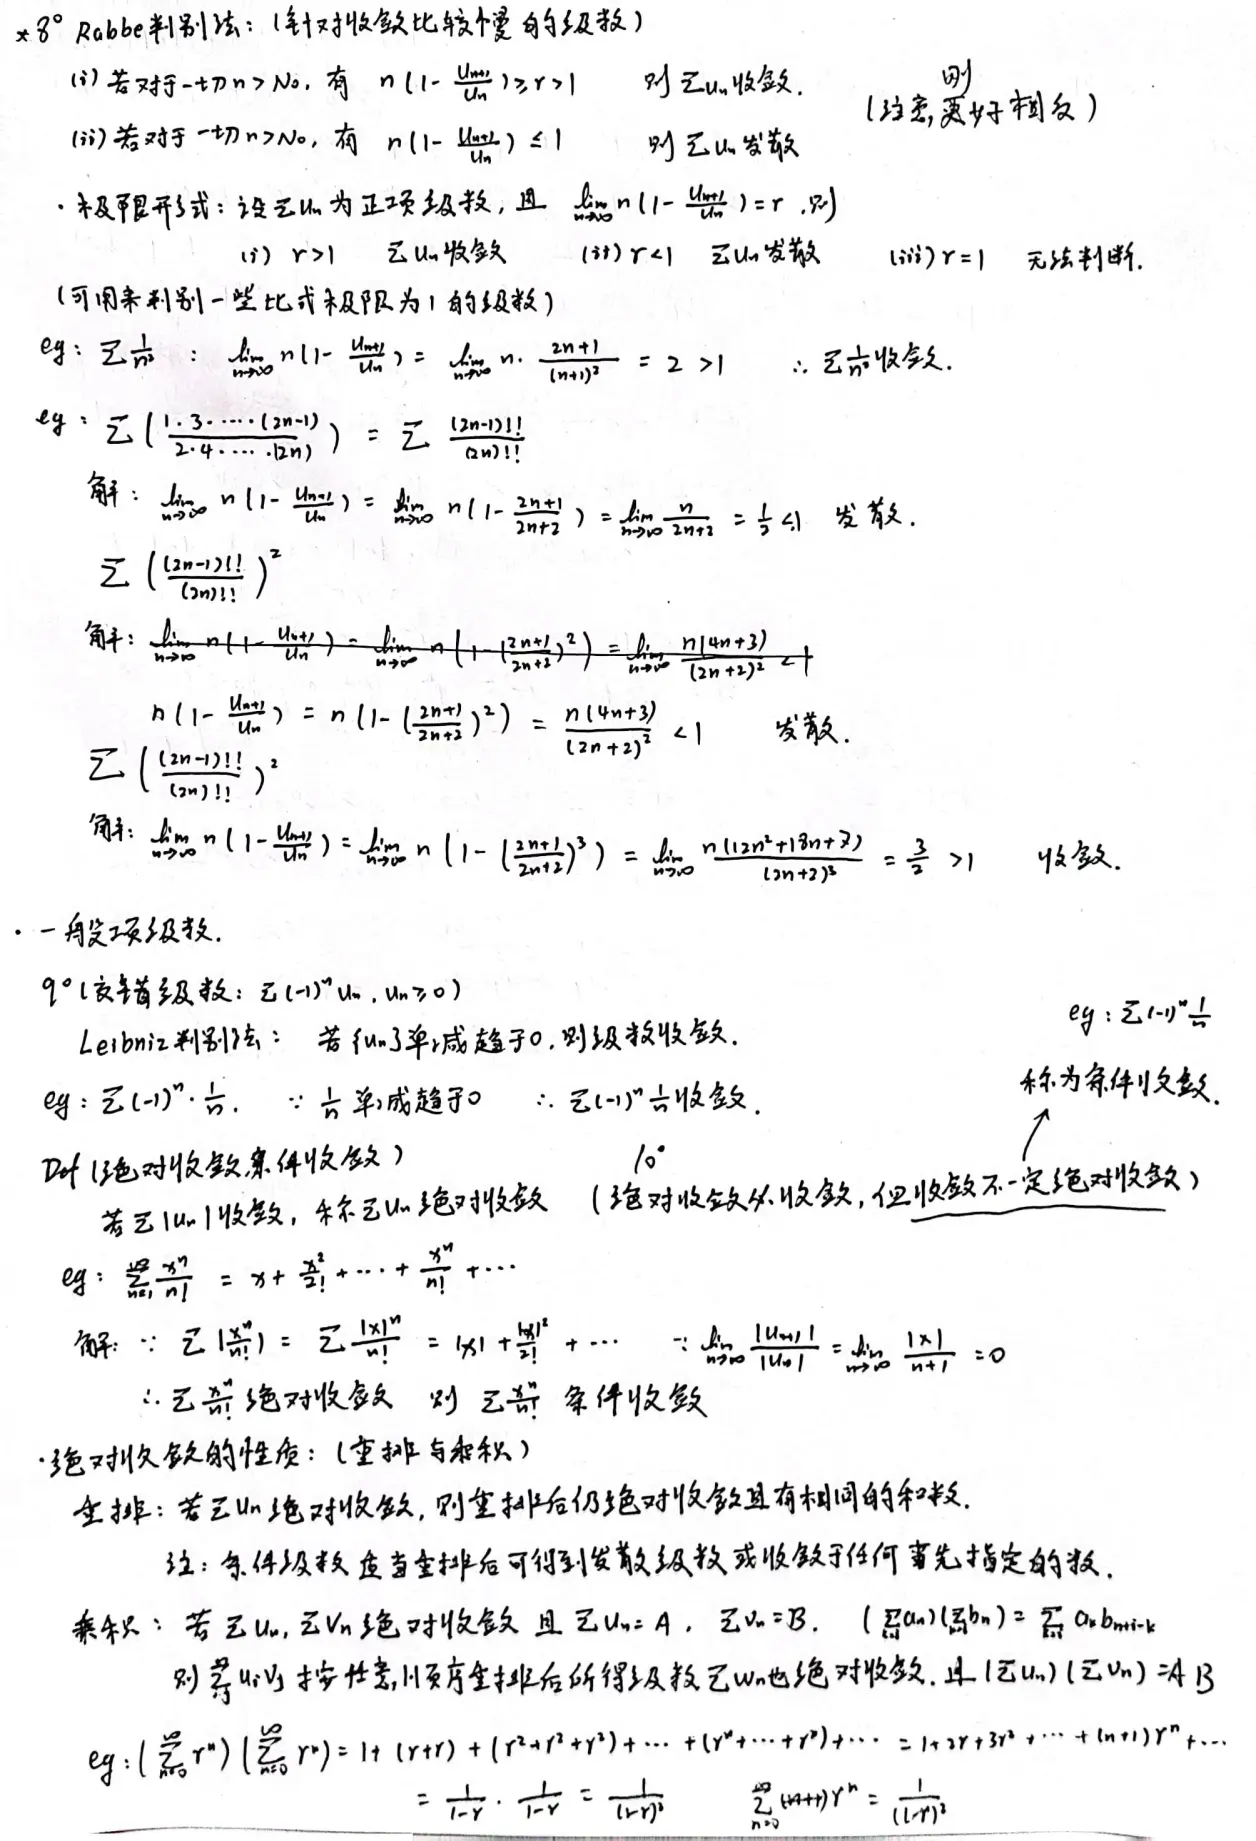 *8° Rabbe判别法：(针对收敛比较慢的级数)
(i) 若对于一切n>N₀，有 n(1-Uₙ₊₁/Uₙ)≥r>1 则ΣUₙ收敛.
(ii) 若对于一切n>N₀，有 n(1-Uₙ₊₁/Uₙ)≤1 则ΣUₙ发散
(注意，刚好相反)
·极限形式：设ΣUₙ为正项级数，且 lim n→∞ n(1-Uₙ₊₁/Uₙ)=r，则
(i) r>1 ΣUₙ收敛 (ii) r<1 ΣUₙ发散 (iii) r=1 无法判断.
(可用来判别一些比式极限为1的级数)
eg: Σ1/n²: lim n→∞ n(1-Uₙ₊₁/Uₙ)= lim n→∞ n·(2n+1)/(n+1)² = 2 >1 ∴Σ1/n²收敛.
eg: Σ(1·3·…·(2n-1)/2·4·…·(2n)) = Σ (2n-1)!!/(2n)!!
解：lim n→∞ n(1-Uₙ₊₁/Uₙ)= lim n→∞ n(1-(2n+1)/(2n+2)) = lim n→∞ n/(2n+2) = 1/2 <1 发散.
Σ((2n-1)!!/(2n)!!)²
解：lim n→∞ n(1-Uₙ₊₁/Uₙ)= lim n→∞ n(1-((2n+1)/(2n+2))²) = lim n→∞ n(4n+3)/(2n+2)² <1
n(1-Uₙ₊₁/Uₙ) = n(1-((2n+1)/(2n+2))²) = n(4n+3)/(2n+2)² <1 发散.
Σ((2n-1)!!/(2n)!!)²
解：lim n→∞ n(1-Uₙ₊₁/Uₙ)= lim n→∞ n(1-((2n+1)/(2n+2))³) = lim n→∞ n(12n²+18n+7)/(2n+2)³ = 3/2 >1 收敛.
·一般项级数.
9°(交错级数：Σ(-1)ⁿUₙ，Uₙ≥0)
Leibniz判别法：若{Uₙ}单减趋于0，则级数收敛.
eg: Σ(-1)ⁿ1/n
称为条件收敛.
eg: Σ(-1)ⁿ·1/n. ∵ 1/n 单减趋于0 ∴ Σ(-1)ⁿ1/n收敛.
Def (绝对收敛，条件收敛)
10°
若Σ|Uₙ|收敛，称ΣUₙ绝对收敛 (绝对收敛必收敛，但收敛不一定绝对收敛)
eg: Σ∞n=1 xⁿ/n! = x + x²/2! + … + xⁿ/n! + …
解：∵ Σ|xⁿ/n!| = Σ|x|ⁿ/n! = |x| + |x|²/2! + … ∵ lim n→∞ |Uₙ₊₁|/|Uₙ| = lim n→∞ |x|/(n+1) = 0
∴ Σxⁿ/n! 绝对收敛 则 Σxⁿ/n! 条件收敛
·绝对收敛的性质：(重排与乘积)
重排：若ΣUₙ绝对收敛，则重排后仍绝对收敛且有相同的和数.
注：条件级数适当重排后可得到发散级数或收敛于任何事先指定的数.
乘积：若ΣUₙ，ΣVₙ绝对收敛 且ΣUₙ=A，ΣVₙ=B. (Σaₙ)(Σbₙ)=Σ aₖbₙ₊₁₋ₖ
则 ΣUᵢVⱼ 按任意顺序重排后所得级数ΣWₙ也绝对收敛. 且(ΣUₙ)(ΣVₙ)=AB
eg: (Σ∞n=0 rⁿ)(Σ∞n=0 rⁿ) = 1+(r+r)+(r²+r²+r²)+…+(rⁿ+…+rⁿ)+… = 1+2r+3r²+…+(n+1)rⁿ+…
= 1/(1-r)·1/(1-r) = 1/(1-r)² Σ∞n=0 (n+1)rⁿ = 1/(1-r)²